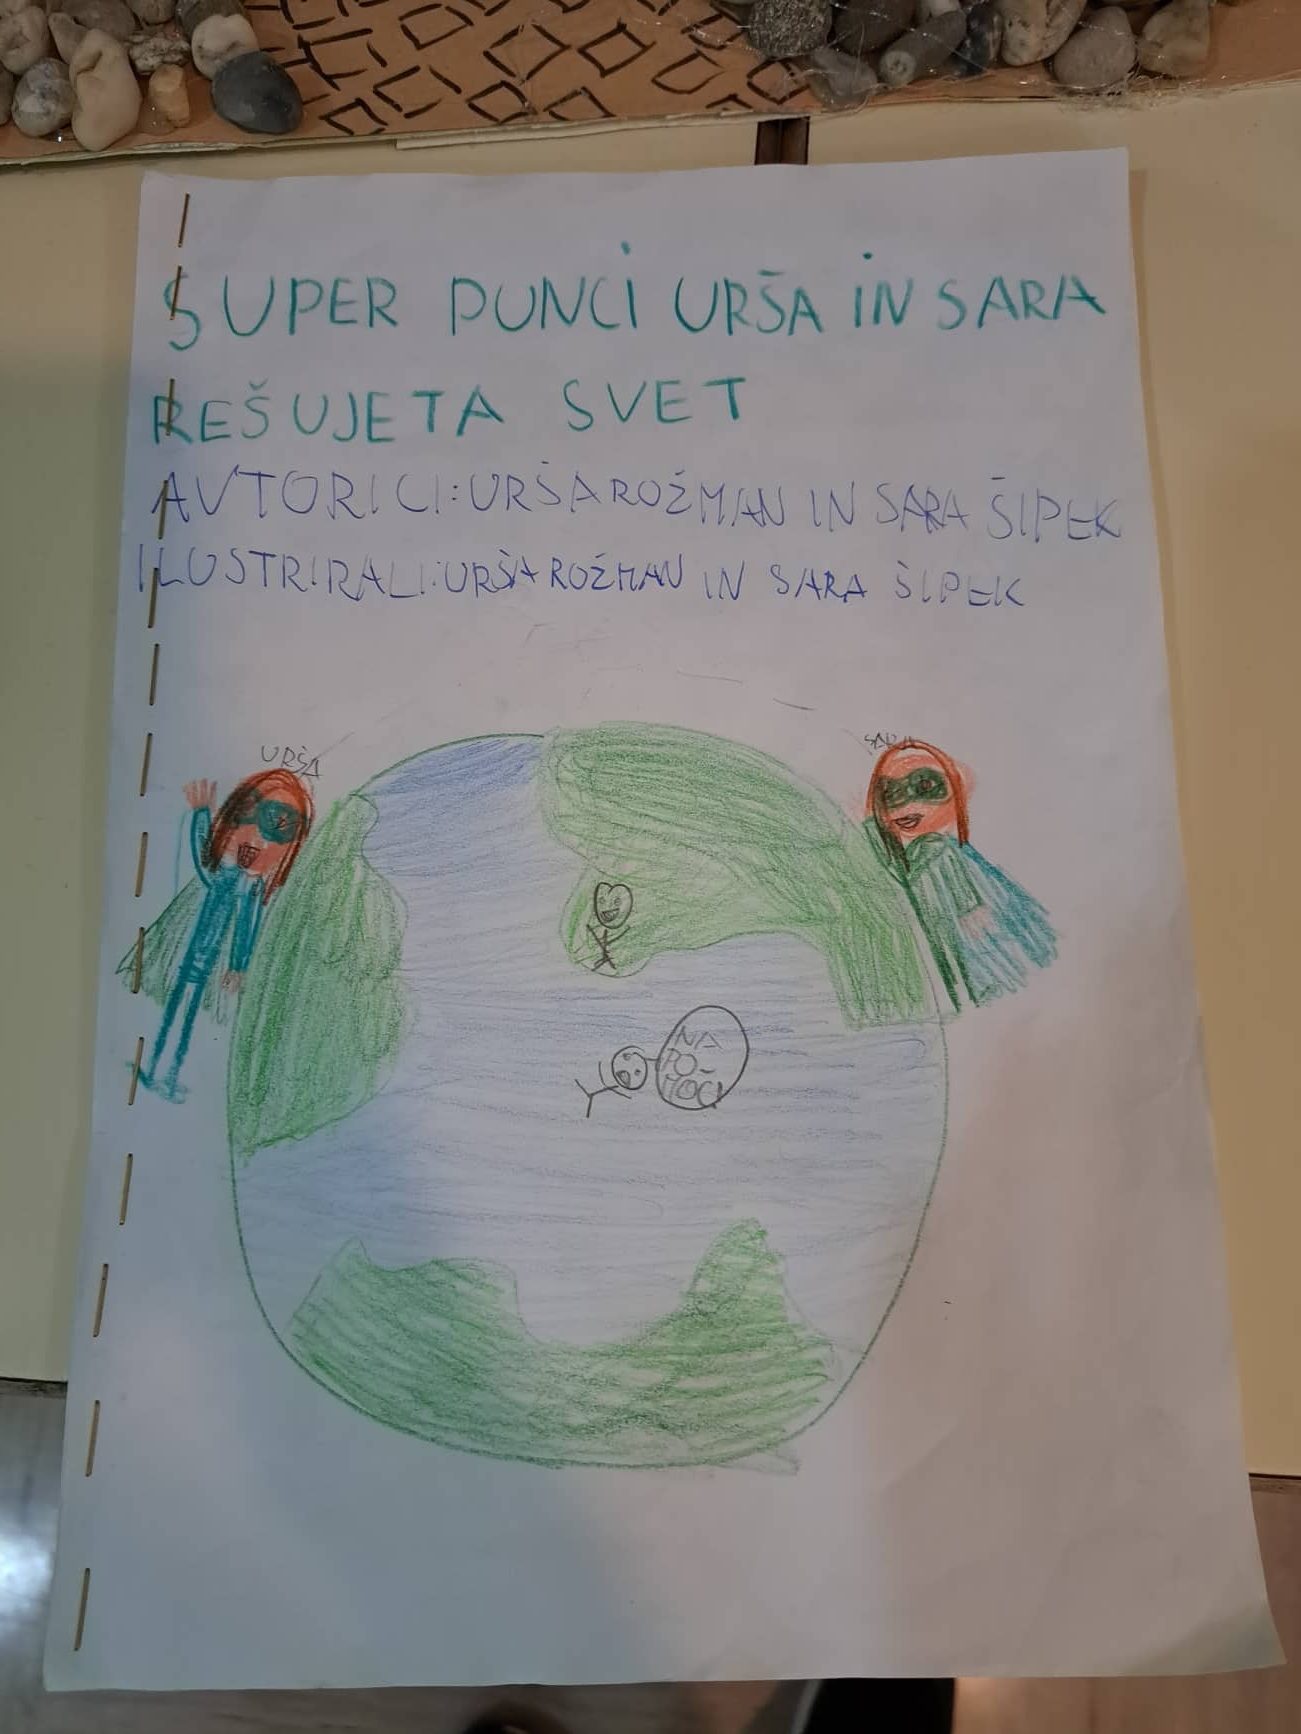 SUPER PUNCI URŠA IN SARA
REŠUJETA SVET
AVTORICI: URŠA ROŽMAN IN SARA ŠIPEK
ILUSTRIRALI: URŠA ROŽMAN IN SARA ŠIPEK
URŠA
SARA
NA
PO-
MOČ